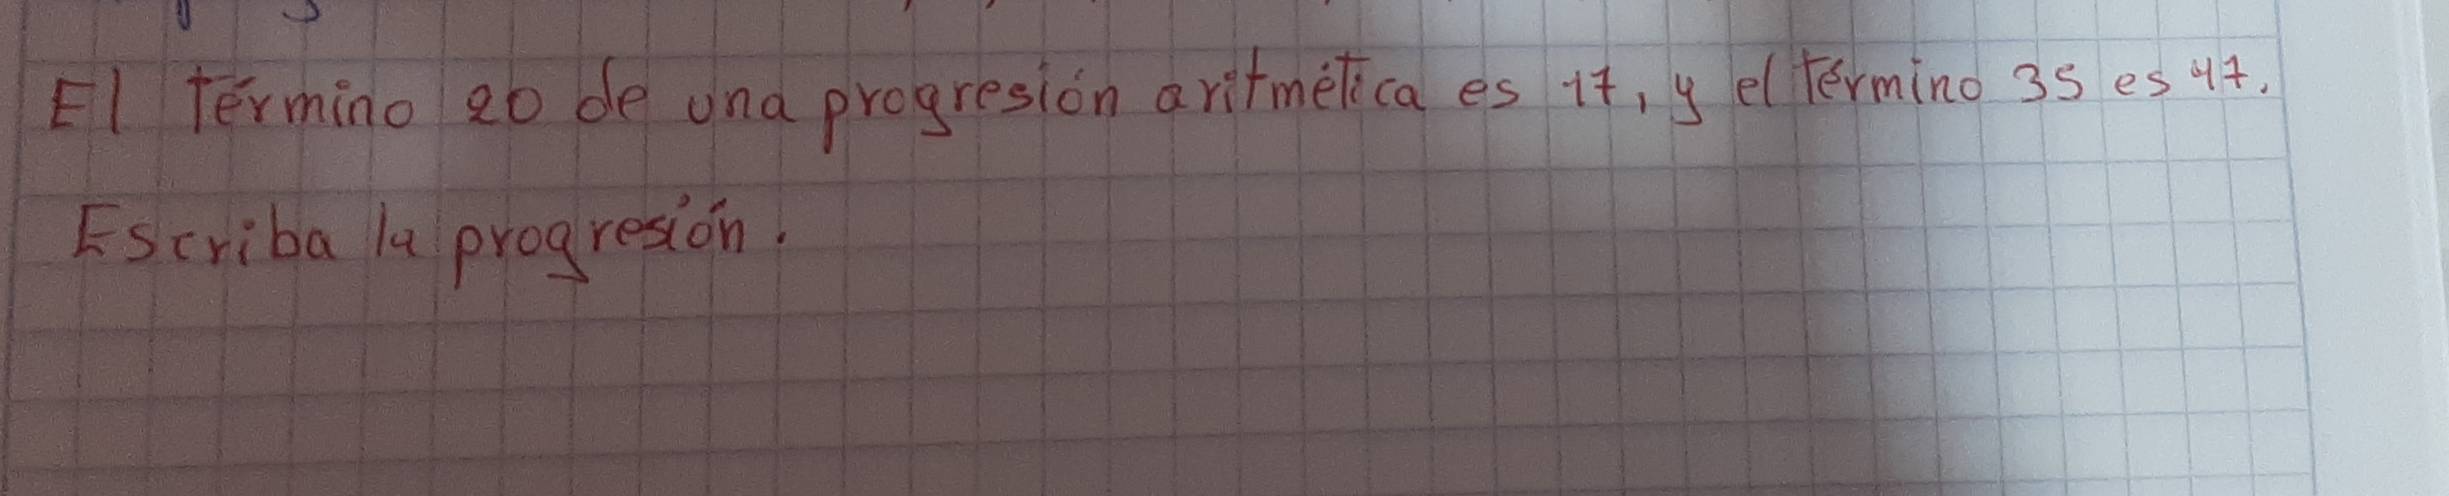 El término 20 de una progresión aritmética es 17, y el término 35 es 47.
Escriba la progresión.